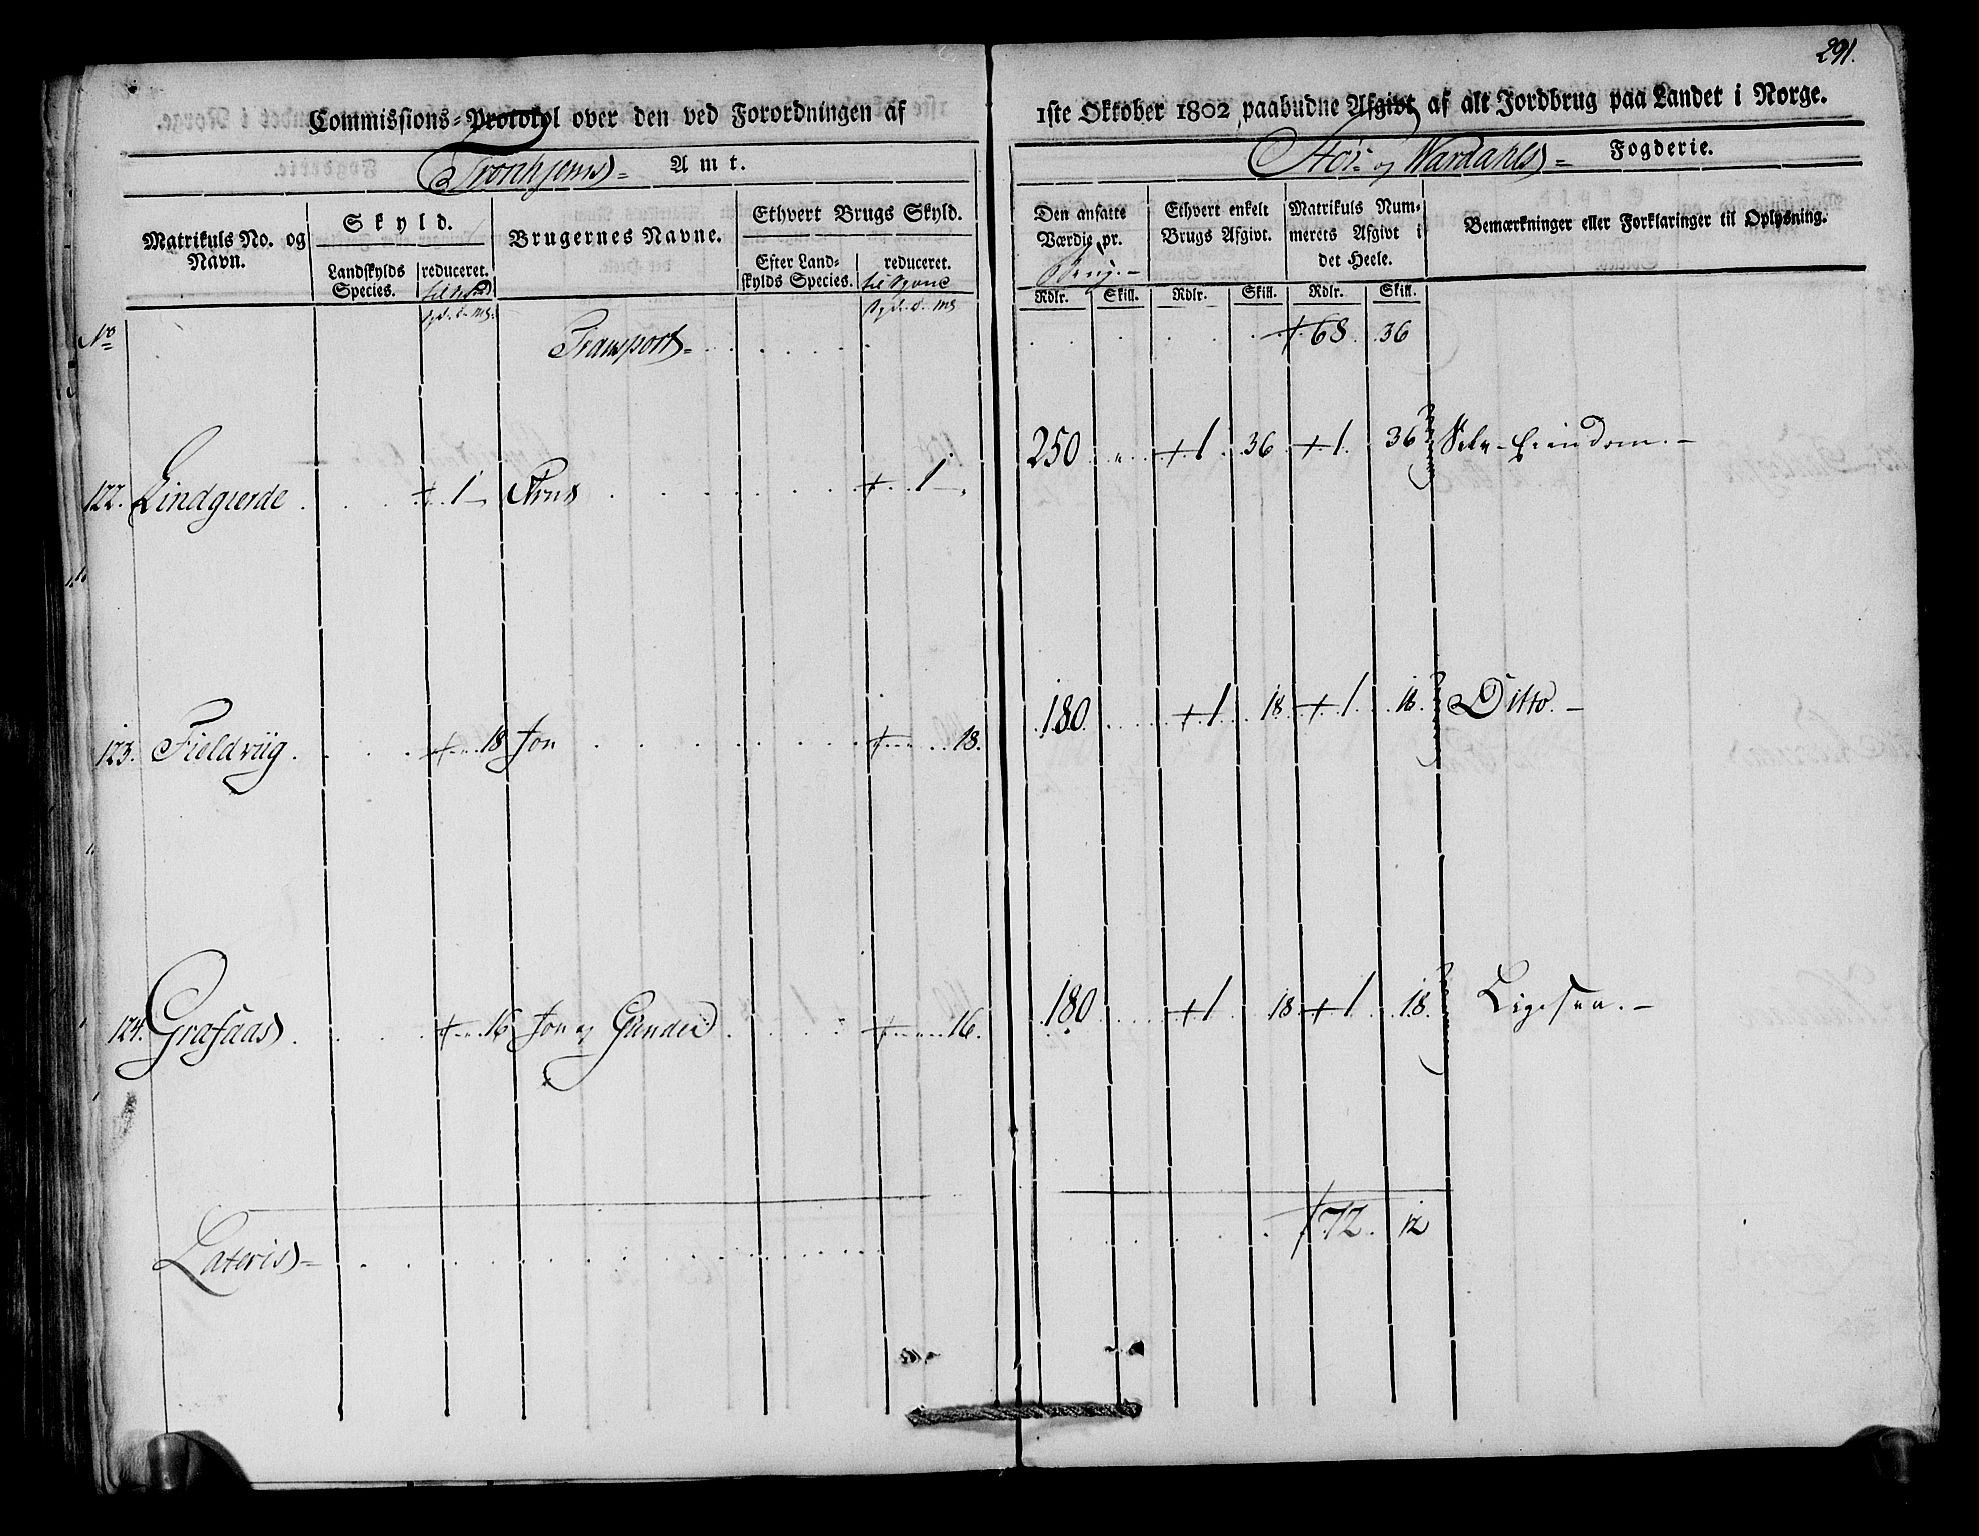 291.
Commissions-Protokol over den ved Forordningen af 1ste Oktober 1802 paabudne Afgivt af alt Jordbrug paa Landet i Norge.
Tronhjems Amt.
Stør- og Wærdahls Fogderie.
Matrikuls No. og Navn.
Skyld.
Landskylds Species.
reduceret.
Brugernes Navne.
Ethvert Brugs Skyld.
Efter Landskylds Species.
reduceret.
til
Den ansatte Værdie pr. Brug.
Ethvert enkelt Brugs Afgivt.
Matrikuls Nummerets Afgivt i det Heele.
Bemærkninger eller Forklaringer til Oplysning.
Rdlr. Skill. Rdlr. Skill. Rdlr. Skill.
No
Transport 68 36
122. Lindgierde 1 1 250 1 36 1 36 Selv-Eiendom.
123. Fieldviig 18 Jon 18. 180 1 18 1 18 Ditto.
124. Grafaas 16 Jon og Gunder 16. 180 1 18 1 18. Ligesaa.
Lateris 72 12